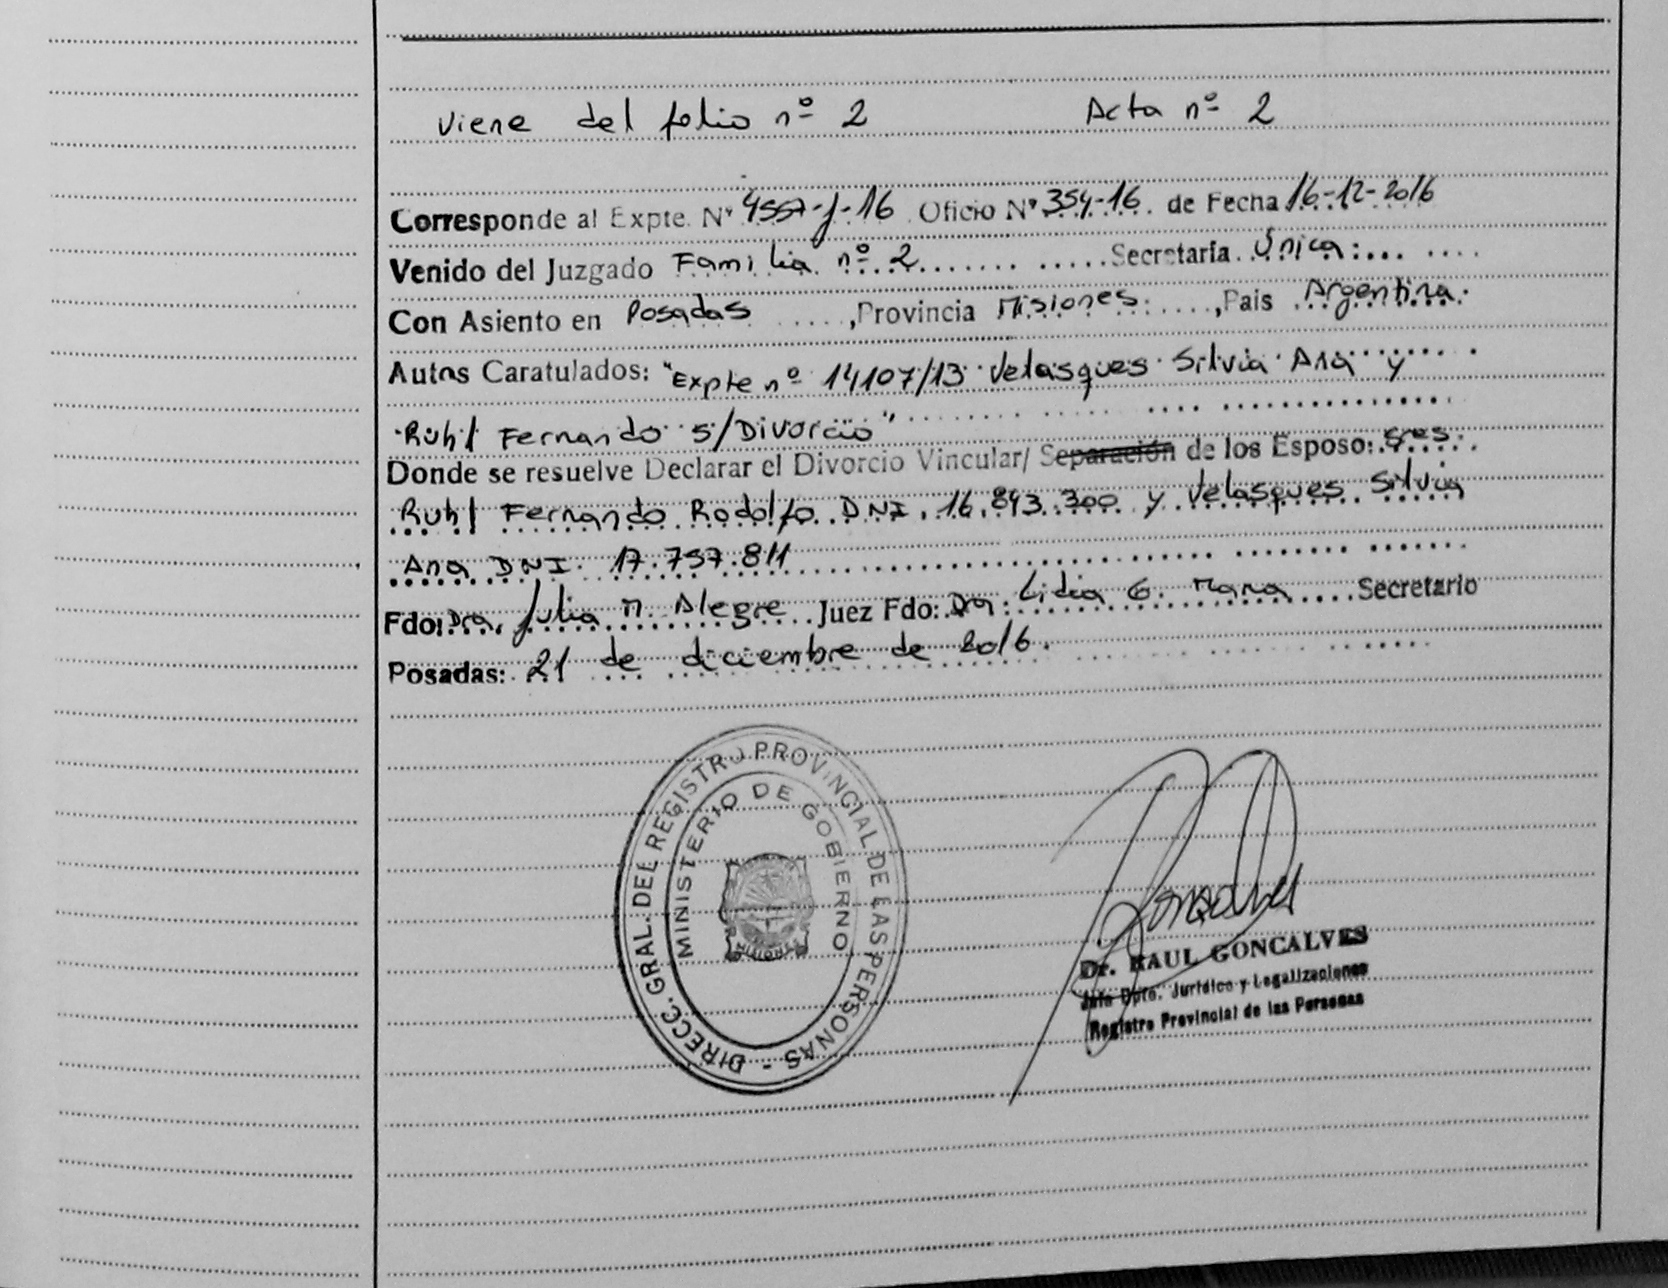 Viene del folio nº 2 Acta nº 2
Corresponde al Expte. Nº 4557-J-16 Oficio Nº 354-16. de Fecha 16-12-2016
Venido del Juzgado Familia nº 2 Secretaría Única:
Con Asiento en Posadas ,Provincia Misiones ,Pais Argentina.
Autos Caratulados: "Expte nº 14107/13 Velasques Silvia Ana y
Ruhl Fernando s/Divorcio"
Donde se resuelve Declarar el Divorcio Vincular/ Separación de los Esposo: Sres.
Ruhl Fernando Rodolfo DNI. 16.893.300 y Velasques Silvia
Ana DNI. 17.757.811
Fdo: Dra. Julia M. Alegre Juez Fdo: Dra: Lidia G. Secretario
Posadas: 21 de diciembre de 2016.
DIRECC. GRAL. DEL REGISTRO PROVINCIAL DE LAS PERSONAS -
MINISTERIO DE GOBIERNO
MISIONES
Dr. RAUL GONCALVES
Jefe Dpto. Jurídico y Legalizaciones
Registro Provincial de las Personas